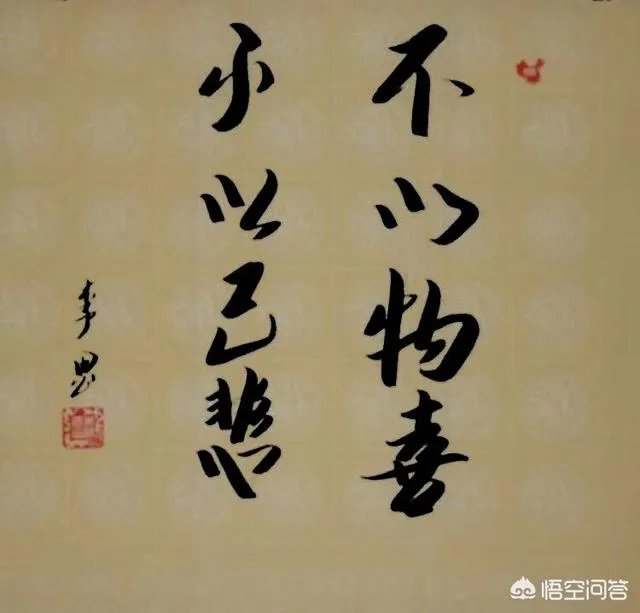 不以物喜
不以己悲
李
悟空问答